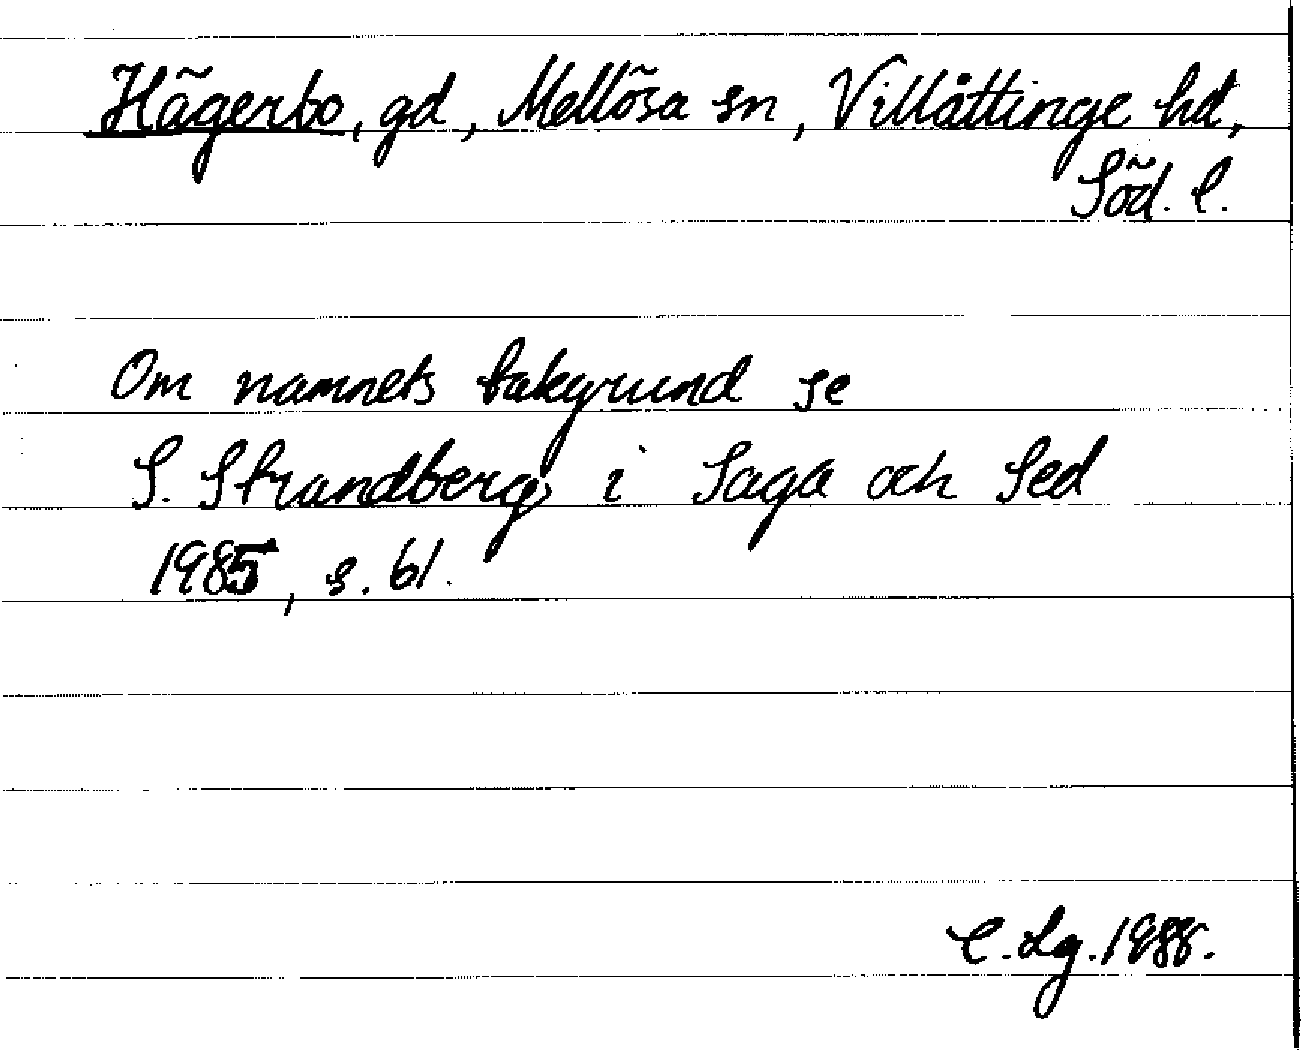 Hägerbo, gd, Mellösa sn, Villåttinge hd,
Söd. l.
Om namnets bakgrund se
S. Strandberg i Saga och Sed
1985, s. 61.
C. Lg. 1988.